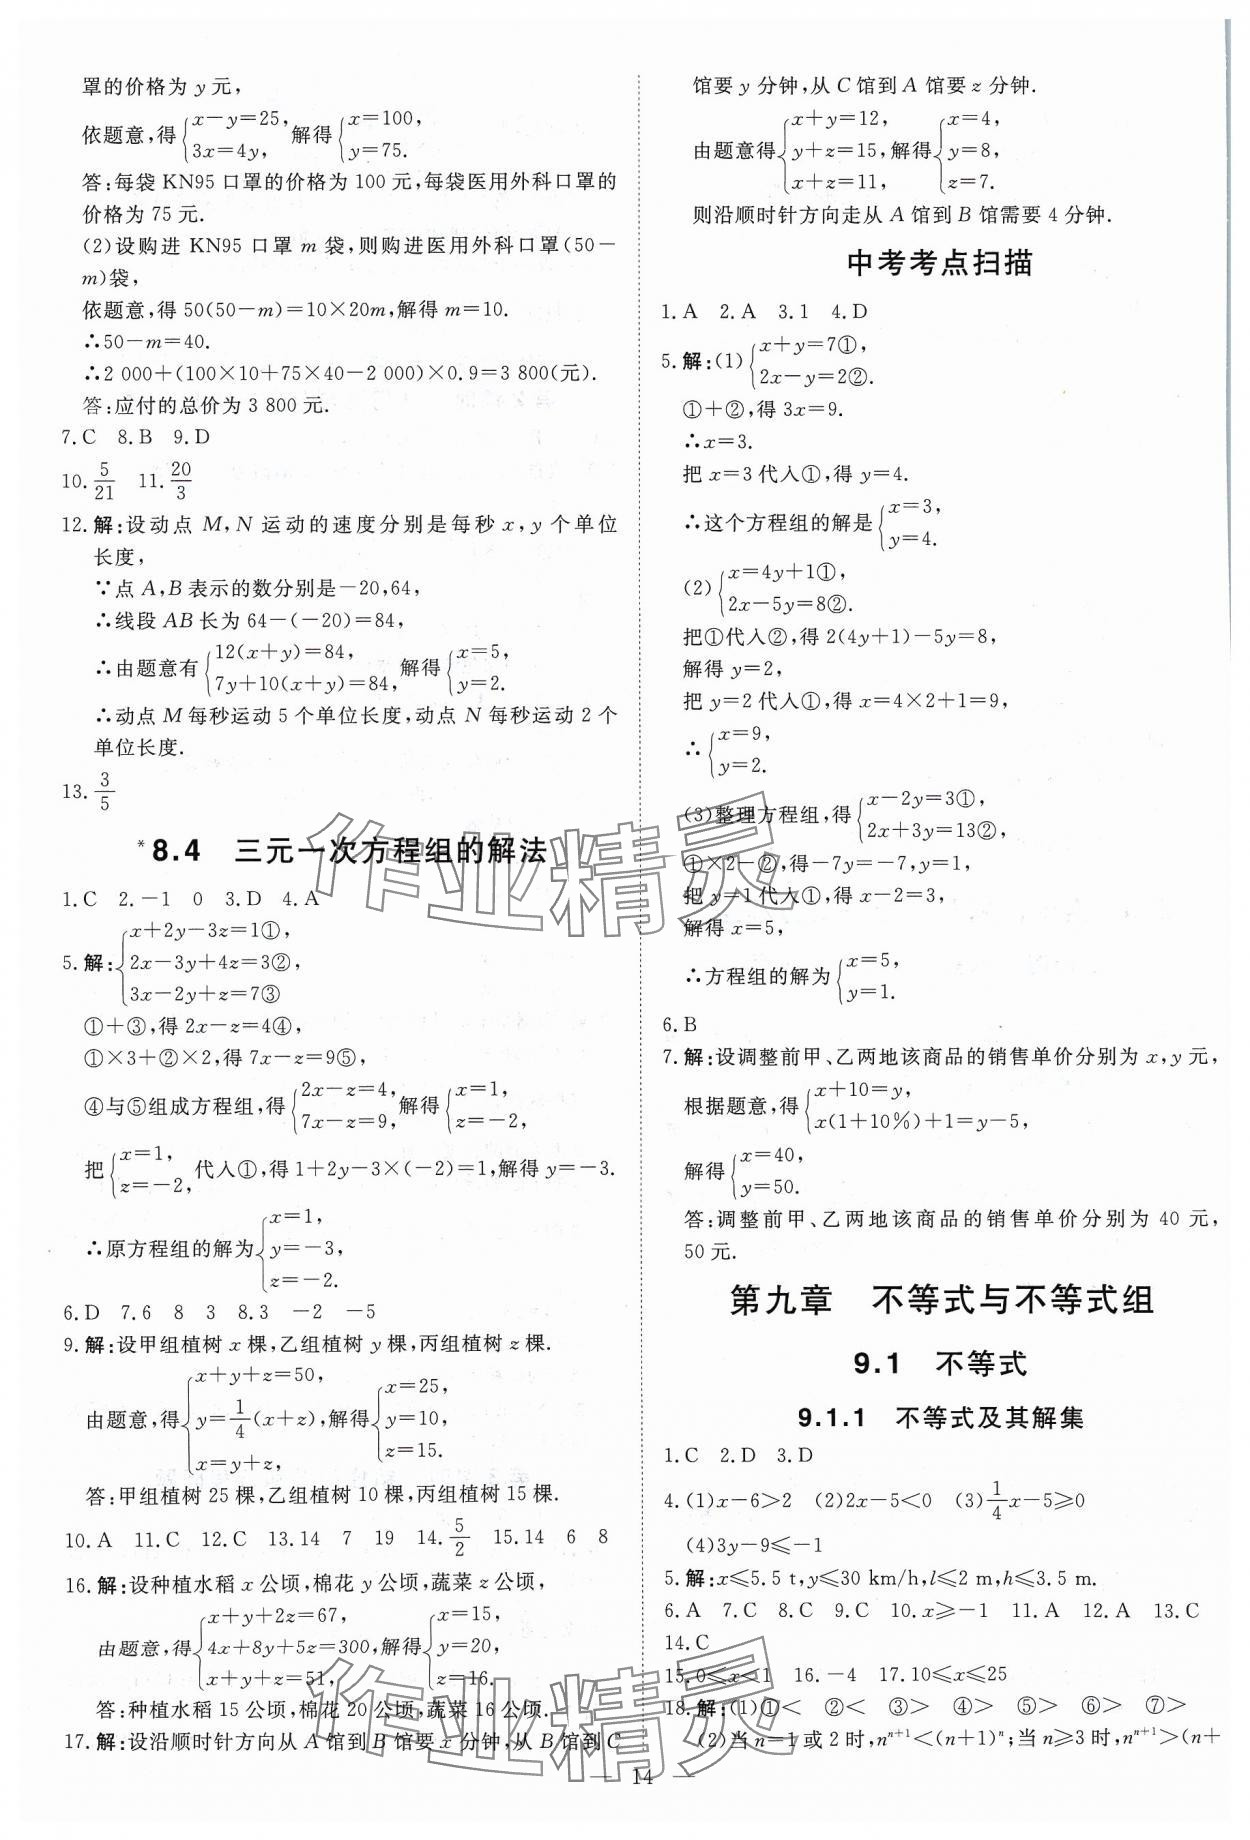 罩的价格为 y 元，
依题意，得{x－y＝25， 3x＝4y， 解得{x＝100， y＝75.
答：每袋 KN95 口罩的价格为 100 元，每袋医用外科口罩的
价格为 75 元.
(2)设购进 KN95 口罩 m 袋，则购进医用外科口罩(50－
m)袋，
依题意，得 50(50－m)＝10×20m，解得 m＝10.
∴50－m＝40.
∴2 000＋(100×10＋75×40－2 000)×0.9＝3 800(元).
答：应付的总价为 3 800 元.
7.C 8.B 9.D
10. 5/21 11. 20/3
12.解：设动点 M，N 运动的速度分别是每秒 x，y 个单位
长度，
∵点 A，B 表示的数分别是－20，64，
∴线段 AB 长为 64－(－20)＝84，
∴由题意有{12(x＋y)＝84， 7y＋10(x＋y)＝84， 解得{x＝5， y＝2.
∴动点 M 每秒运动 5 个单位长度，动点 N 每秒运动 2 个
单位长度.
13. 3/5
*8.4 三元一次方程组的解法
1.C 2.－1 0 3.D 4.A
5.解：{x＋2y－3z＝1①， 2x－3y＋4z＝3②， 3x－2y＋z＝7③
①＋③，得 2x－z＝4④，
①×3＋②×2，得 7x－z＝9⑤，
④与⑤组成方程组，得{2x－z＝4， 7x－z＝9， 解得{x＝1， z＝－2，
把{x＝1， z＝－2， 代入①，得 1＋2y－3×(－2)＝1，解得 y＝－3.
∴原方程组的解为{x＝1， y＝－3， z＝－2.
6.D 7.6 8 3 8.3 －2 －5
9.解：设甲组植树 x 棵，乙组植树 y 棵，丙组植树 z 棵.
由题意，得{x＋y＋z＝50， y＝1/4(x＋z)， x＝y＋z， 解得{x＝25， y＝10， z＝15.
答：甲组植树 25 棵，乙组植树 10 棵，丙组植树 15 棵.
10.A 11.C 12.C 13.14 7 19 14. 5/2 15.14 6 8
16.解：设种植水稻 x 公顷，棉花 y 公顷，蔬菜 z 公顷，
由题意，得{x＋y＋2z＝67， 4x＋8y＋5z＝300， x＋y＋z＝51， 解得{x＝15， y＝20， z＝16.
答：种植水稻 15 公顷，棉花 20 公顷，蔬菜 16 公顷.
17.解：设沿顺时针方向从 A 馆到 B 馆要 x 分钟，从 B 馆到 C
馆要 y 分钟，从 C 馆到 A 馆要 z 分钟.
由题意得{x＋y＝12， y＋z＝15， x＋z＝11， 解得{x＝4， y＝8， z＝7.
则沿顺时针方向走从 A 馆到 B 馆需要 4 分钟.
中考考点扫描
1.A 2.A 3.1 4.D
5.解：(1){x＋y＝7①， 2x－y＝2②.
①＋②，得 3x＝9.
∴x＝3.
把 x＝3 代入①，得 y＝4.
∴这个方程组的解是{x＝3， y＝4.
(2){x＝4y＋1①， 2x－5y＝8②.
把①代入②，得 2(4y＋1)－5y＝8，
解得 y＝2，
把 y＝2 代入①，得 x＝4×2＋1＝9，
∴{x＝9， y＝2.
(3)整理方程组，得{x－2y＝3①， 2x＋3y＝13②，
①×2－②，得－7y＝－7，y＝1，
把 y＝1 代入①，得 x－2＝3，
解得 x＝5，
∴方程组的解为{x＝5， y＝1.
6.B
7.解：设调整前甲、乙两地该商品的销售单价分别为 x，y 元，
根据题意，得{x＋10＝y， x(1＋10%)＋1＝y－5，
解得{x＝40， y＝50.
答：调整前甲、乙两地该商品的销售单价分别为 40 元，
50 元.
第九章 不等式与不等式组
9.1 不等式
9.1.1 不等式及其解集
1.C 2.D 3.D
4.(1)x－6＞2 (2)2x－5＜0 (3)1/4x－5≥0
(4)3y－9≤－1
5.解：x≤5.5 t，y≤30 km/h，l≤2 m，h≤3.5 m.
6.A 7.C 8.C 9.C 10.x≥－1 11.A 12.A 13.C
14.C
15.0≤x＜1 16.－4 17.10≤x≤25
18.解：(1)①＜ ②＜ ③＞ ④＞ ⑤＞ ⑥＞ ⑦＞
(2)当 n＝1 或 2 时，nⁿ⁺¹＜(n＋1)ⁿ；当 n≥3 时，nⁿ⁺¹＞(n＋
— 14 —
作业精灵
作业精灵